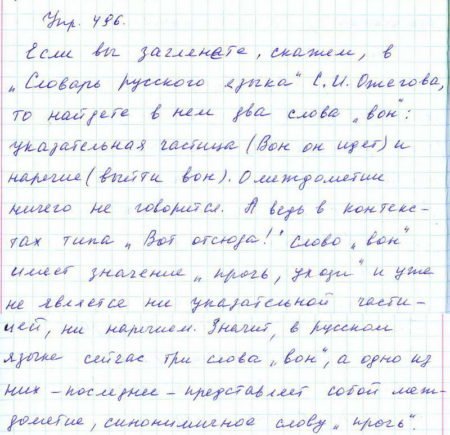 Упр. 496.
Если вы заглянете, скажем, в
„Словарь русского языка" С. И. Ожегова,
то найдете в нем два слова „вон":
указательная частица (Вон он идет) и
наречие (выйти вон). О междометии
ничего не говорится. А ведь в контекс-
тах типа „Вот отсюда!" слово „вон"
имеет значение „прочь, уходи" и уже
не является ни указательной части-
цей, ни наречием. Значит, в русском
языке сейчас три слова „вон", а одно из
них – последнее – представляет собой меж-
дометие, синонимичное слову „прочь".